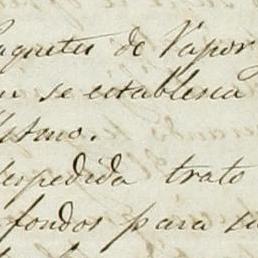 aquetes de Vapor
se establesca
Istmo.
espedida trato
fondos para su